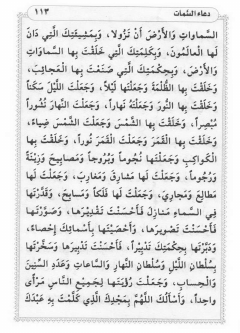 دعاء السمات ١١٣
السَّماواتِ وَالْأَرْضَ أَنْ تَزُولا، وَبِمَشِيَّتِكَ الَّتِي دَانَ
لَهَا الْعالَمُونَ، وَبِكَلِمَتِكَ الَّتِي خَلَقْتَ بِهَا السَّماواتِ
وَالْأَرْضَ، وَبِحِكْمَتِكَ الَّتِي صَنَعْتَ بِهَا الْعَجائِبَ،
وَخَلَقْتَ بِهَا الظُّلْمَةَ وَجَعَلْتَها لَيْلاً، وَجَعَلْتَ اللَّيْلَ سَكَناً
وَخَلَقْتَ بِهَا النُّورَ وَجَعَلْتَهُ نَهاراً، وَجَعَلْتَ النَّهارَ نُشُوراً
مُبْصِراً، وَخَلَقْتَ بِهَا الشَّمْسَ وَجَعَلْتَ الشَّمْسَ ضِياءً،
وَخَلَقْتَ بِهَا الْقَمَرَ وَجَعَلْتَ الْقَمَرَ نُوراً، وَخَلَقْتَ بِهَا
الْكَواكِبَ وَجَعَلْتَها نُجُوماً وَبُرُوجاً وَمَصابِيحَ وَزِينَةً
وَرُجُوماً، وَجَعَلْتَ لَها مَشارِقَ وَمَغارِبَ، وَجَعَلْتَ لَها
مَطالِعَ وَمَجارِيَ، وَجَعَلْتَ لَها فَلَكاً وَمَسابِحَ، وَقَدَّرْتَها
فِي السَّماءِ مَنازِلَ فَأَحْسَنْتَ تَقْدِيرَها، وَصَوَّرْتَها
فَأَحْسَنْتَ تَصْوِيرَها، وَأَحْصَيْتَها بِأَسْمائِكَ إِحْصاءً،
وَدَبَّرْتَها بِحِكْمَتِكَ تَدْبِيراً، فَأَحْسَنْتَ تَدْبِيرَها وَسَخَّرْتَها
بِسُلْطانِ اللَّيْلِ وَسُلْطانِ النَّهارِ وَالسَّاعاتِ وَعَدَدِ السِّنِينَ
وَالْحِسابِ، وَجَعَلْتَ رُؤْيَتَها لِجَمِيعِ النَّاسِ مَرْأىً
واحِداً، وَأَسْأَلُكَ اللّهُمَّ بِمَجْدِكَ الَّذِي كَلَّمْتَ بِهِ عَبْدَكَ